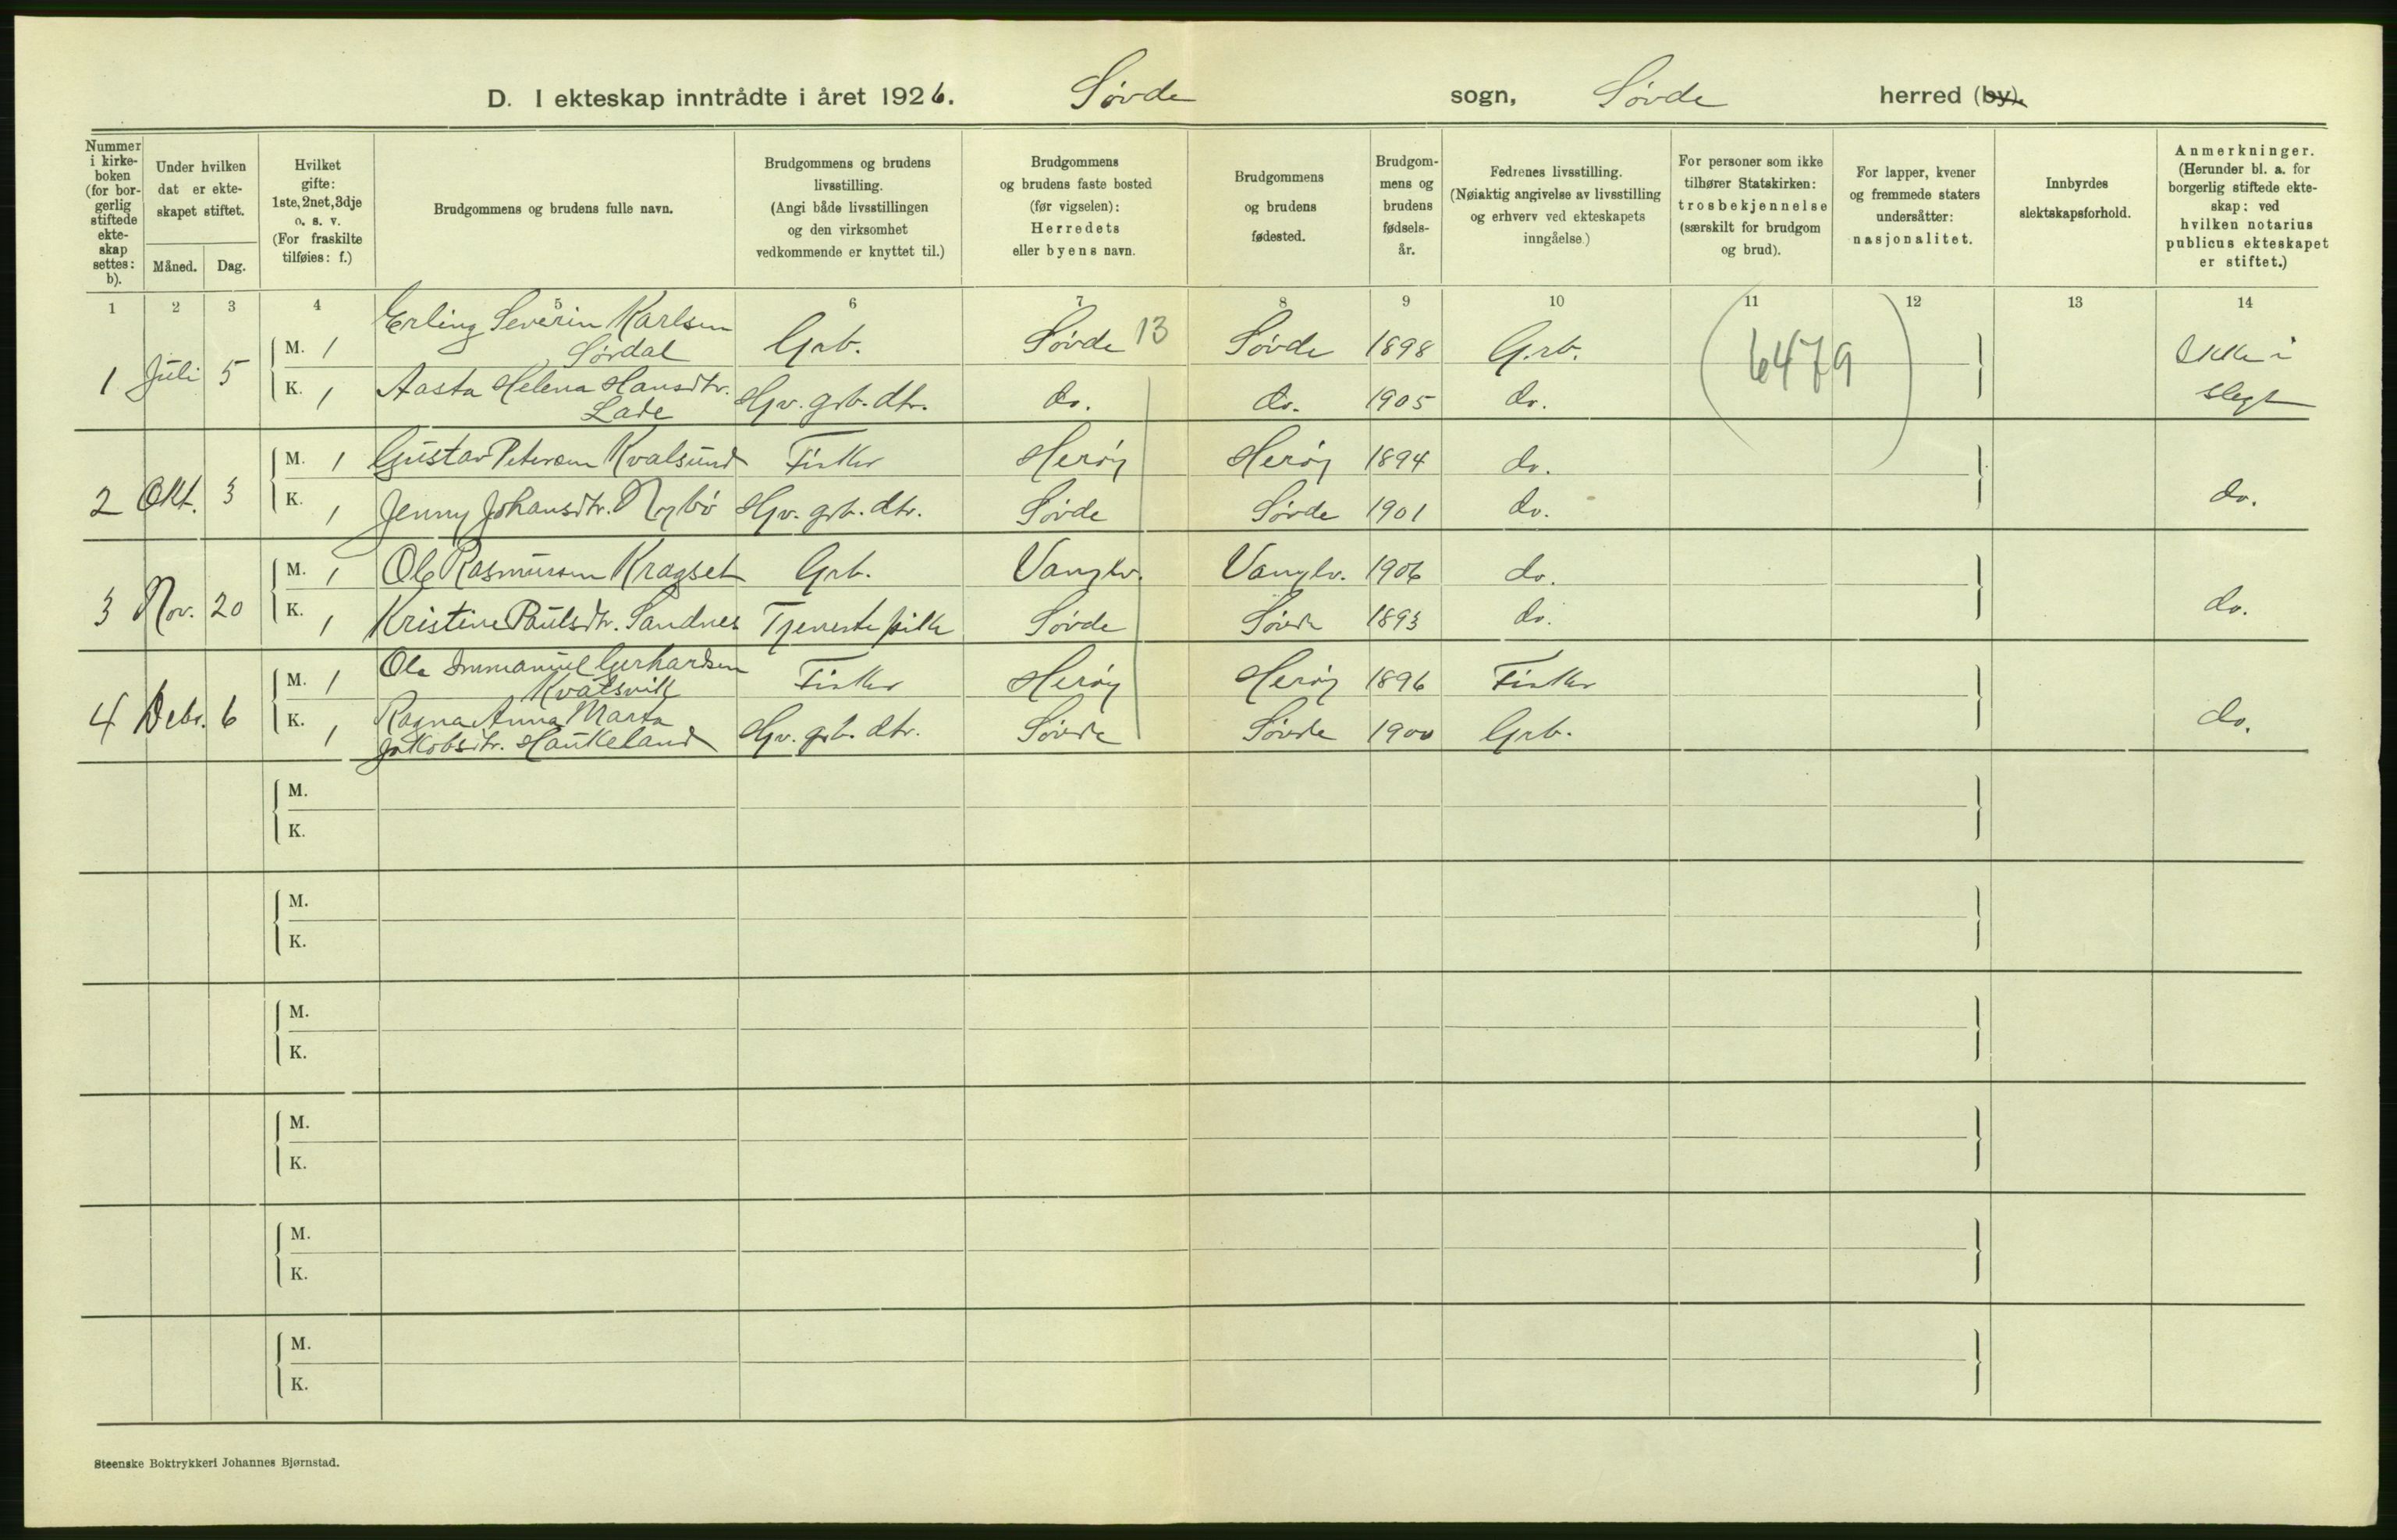 D. I ekteskap inntrådte i året 1926. Søvde sogn, Søvde herred (by).
Nummer
i kirke-
boken
(for bor-
gerlig
stiftede
ekte-
skap
settes:
b).
Under hvilken
dat er ekte-
skapet stiftet.
Måned. Dag.
Hvilket
gifte:
1ste, 2net, 3dje
o. s. v.
(For fraskilte
tilføies: f.)
Brudgommens og brudens fulle navn.
Brudgommens og brudens
livsstilling.
(Angi både livsstillingen
og den virksomhet
vedkommende er knyttet til.)
Brudgommens
og brudens faste bosted
(før vigselen):
Herredets
eller byens navn.
Brudgommens
og brudens
fødested.
Brudgom-
mens og
brudens
fødsels-
år.
Fedrenes livsstilling.
(Nøiaktig angivelse av livsstilling
og erhverv ved ekteskapets
inngåelse.)
For personer som ikke
tilhører Statskirken:
trosbekjennelse
(særskilt for brudgom
og brud).
For lapper, kvener
og fremmede staters
undersåtter:
nasjonalitet.
Innbyrdes
slektskapsforhold.
Anmerkninger.
(Herunder bl. a. for
borgerlig stiftede ekte-
skap: ved
hvilken notarius
publicus ekteskapet
er stiftet.)
1 2 3 4 5 6 7 8 9 10 11 12 13 14
1 Juli 5
M. 1 Erling Severin Karlsen
Sørdal Grb. Søvde 13 Søvde 1898 Grb. (6479) Ikke i
K. 1 Aasta Helena Hansdtr.
Lade Hv. grb. dtr. do. do. 1905 do. slegt
2 Okt. 3
M. 1 Gustav Petersen Kvalsund Fisker Herøy Herøy 1894 do.
K. 1 Jenny Johansdtr. Nybø Hv. grb. dtr. Søvde Søvde 1901 do. do.
3 Nov. 20
M. 1 Ole Rasmussen Kragset Grb. Vanylv. Vanylv. 1906 do.
K. 1 Kristine Paulsdtr. Sandnes Tjenestepike Søvde Søvde 1893 do. do.
4 Debr. 6
M. 1 Ole Immanuel Gerhardsen
Kvalsvik Fisker Herøy Herøy 1896 Fisker
K. 1 Ragna Anna Marta
Jakobsdtr. Haukeland Hv. grb. dtr. Søvde Søvde 1900 Grb. do.
M.
K.
M.
K.
M.
K.
M.
K.
M.
K.
M.
K.
Steenske Boktrykkeri Johannes Bjørnstad.